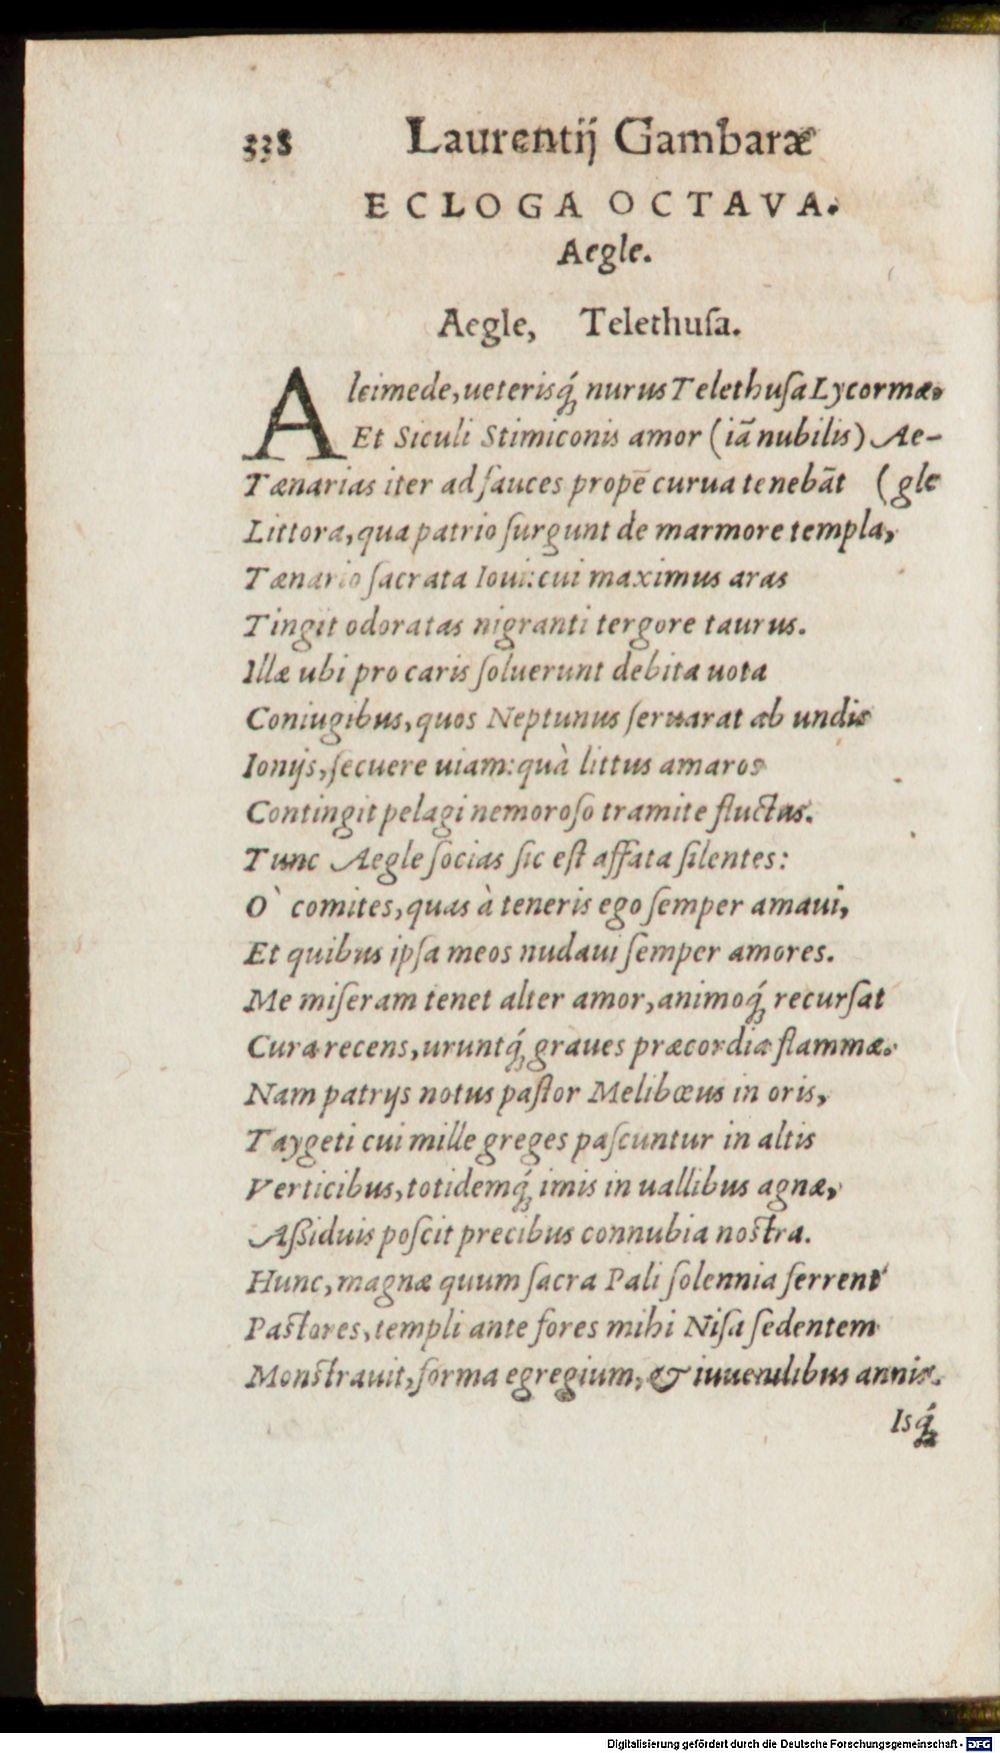 338 Laurentij Gambaræ
ECLOGA OCTAVA.
Aegle.
Aegle, Telethuſa.
Alcimede, ueterisq́; nurus Telethuſa Lycormæ,
Et Siculi Stimiconis amor (iã nubilis) Ae-
Tænarias iter ad fauces propẽ curua tenebãt (gle
Littora, qua patrio ſurgunt de marmore templa,
Tænario ſacrata Ioui: cui maximus aras
Tingit odoratas nigranti tergore taurus.
Illæ ubi pro caris ſoluerunt debita uota
Coniugibus, quos Neptunus ſeruarat ab undis
Ionijs, ſecuere uiam: quà littus amaros
Contingit pelagi nemoroſo tramite fluctus.
Tunc Aegle ſocias ſic eſt affata ſilentes:
O` comites, quas à teneris ego ſemper amaui,
Et quibus ipſa meos nudaui ſemper amores.
Me miſeram tenet alter amor, animoq́; recurſat
Cura recens, uruntq́; graues præcordia flammæ.
Nam patrijs notus paſtor Melibœus in oris,
Taygeti cui mille greges paſcuntur in altis
Verticibus, totidemq́; imis in uallibus agnæ,
Aßiduis poſcit precibus connubia noſtra.
Hunc, magnæ quum ſacra Pali ſolennia ferrent
Paſtores, templi ante fores mihi Niſa ſedentem
Monſtrauit, forma egregium, & iuuenilibus annis.
Isq́;
Digitalisierung gefördert durch die Deutsche Forschungsgemeinschaft - DFG